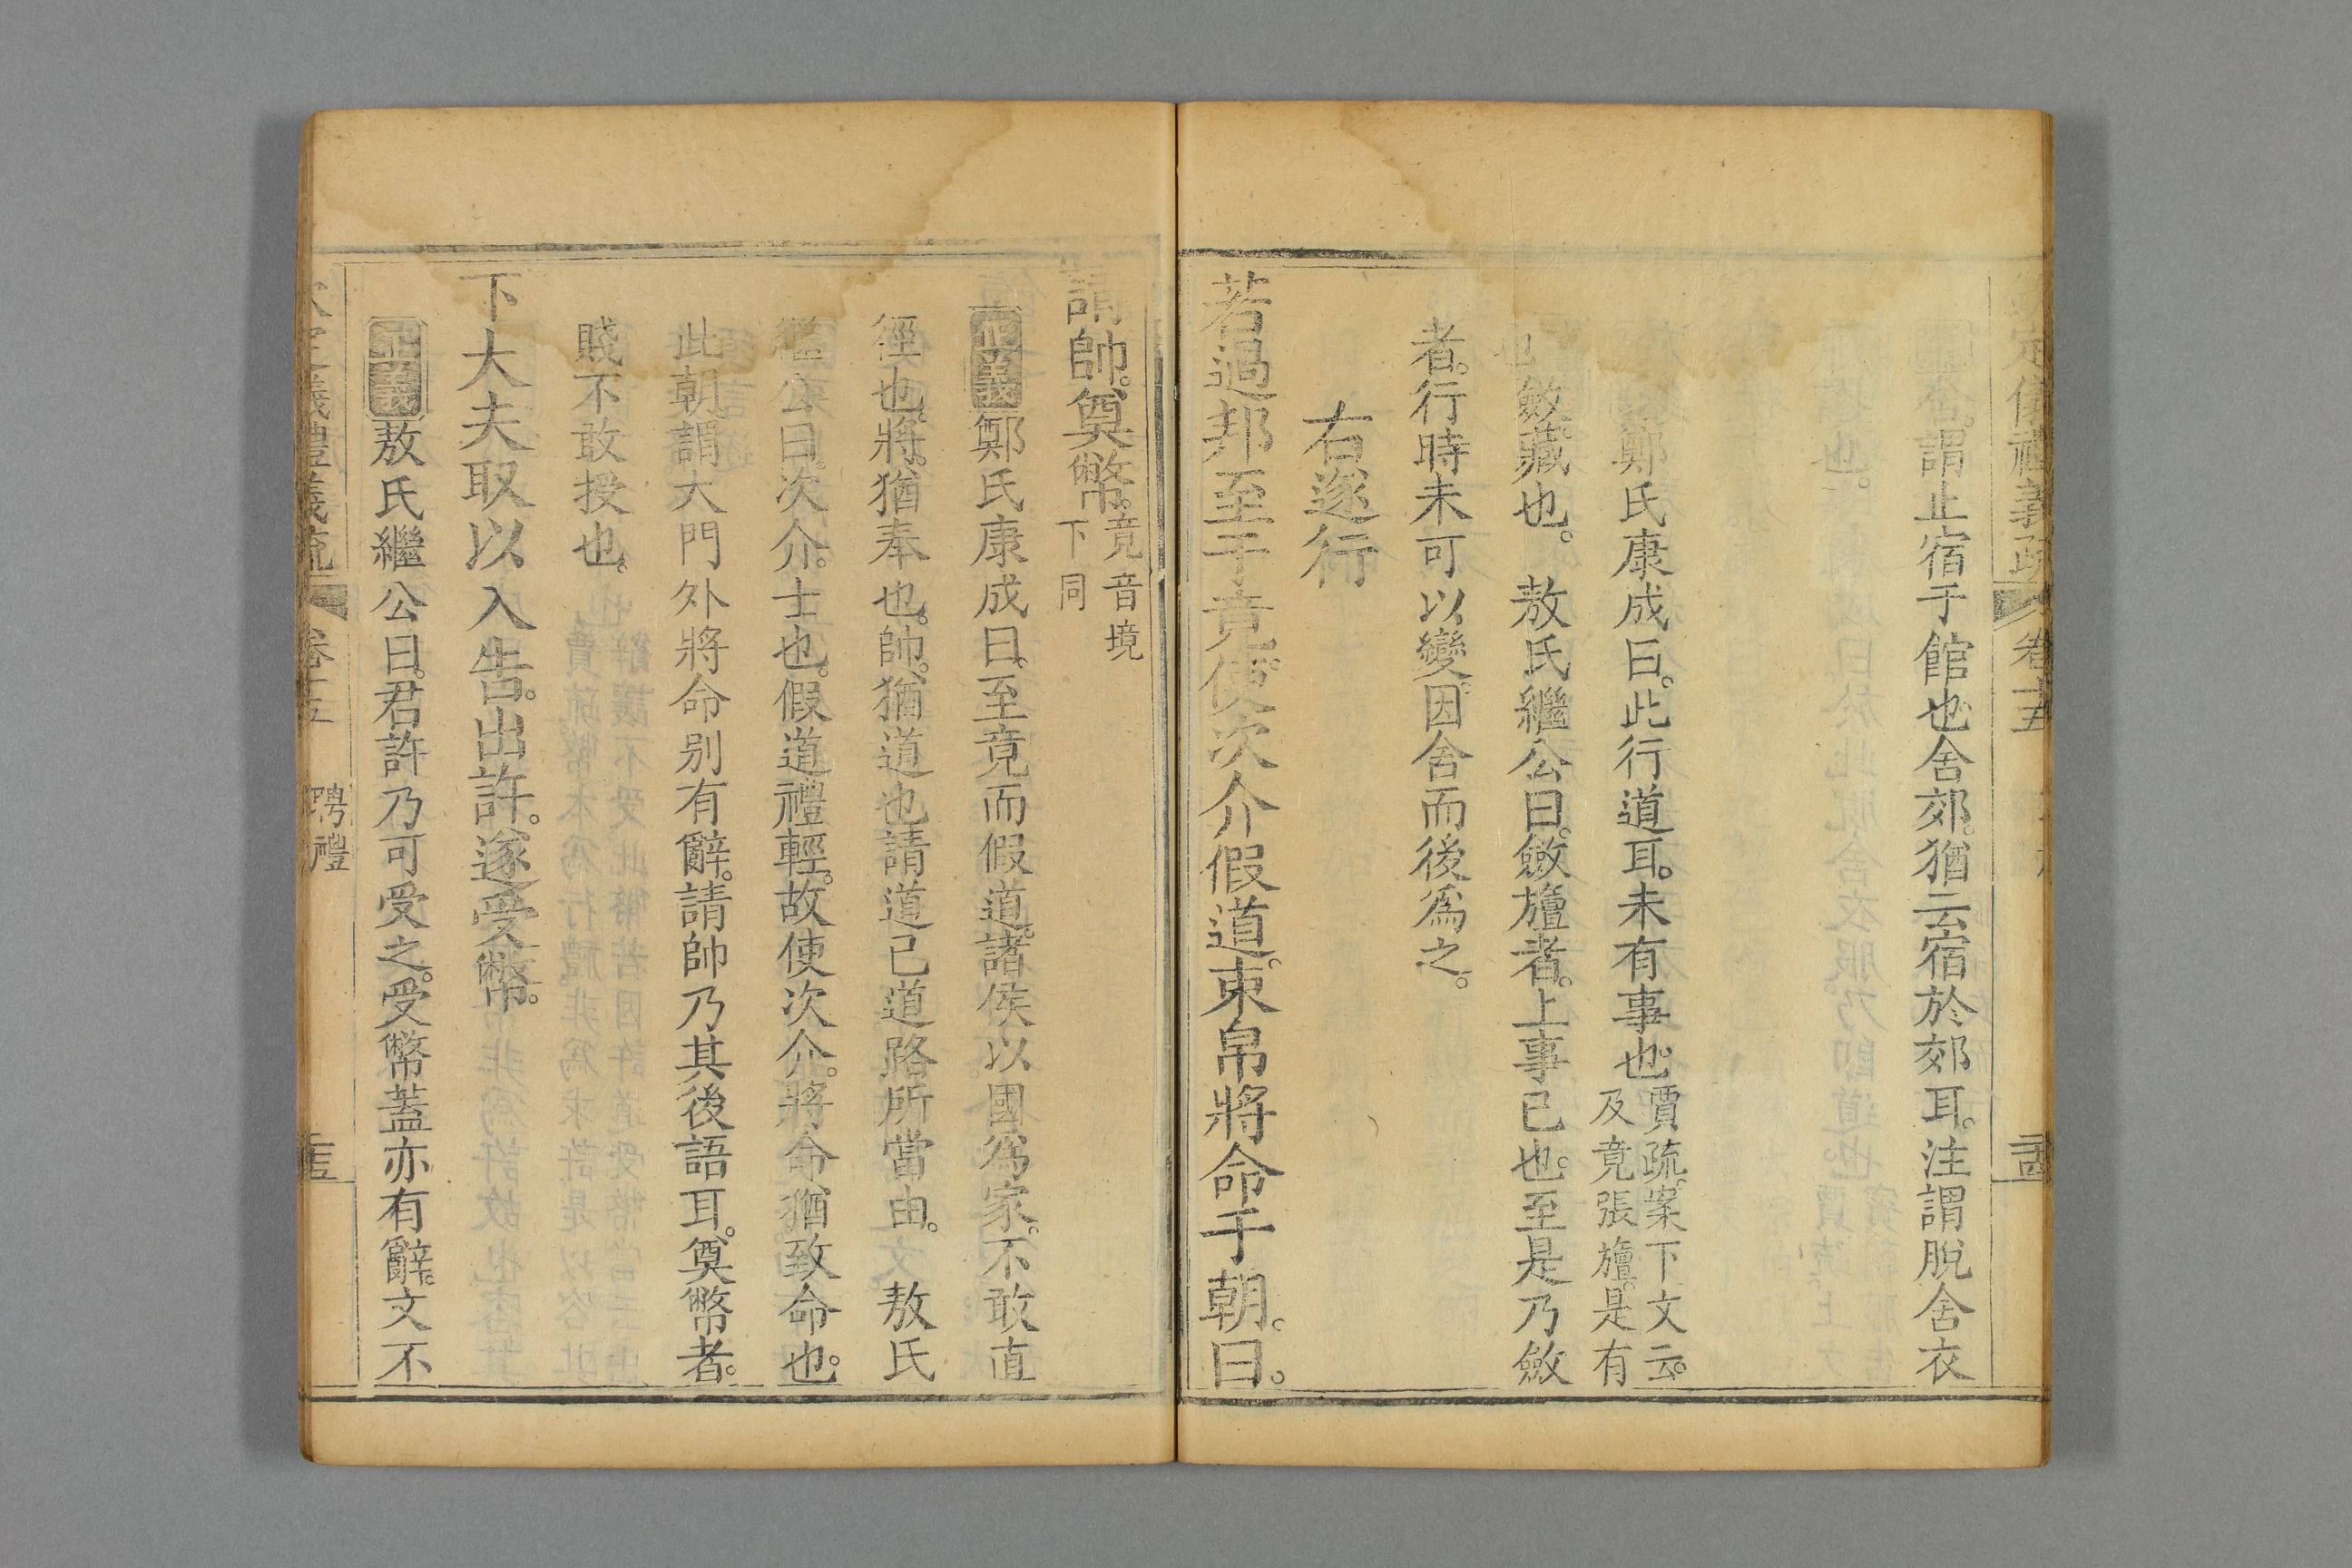 定儀禮義疏 卷十五
謂止宿于館也舍郊猶云宿於郊耳注謂脫舍衣
鄭氏康成曰此行道耳未有事也賈疏案下文云及竟張旜是有
也斂藏也。 敖氏繼公曰斂旜者上事已也至是乃斂
者行時未可以變因舍而後爲之。
右遂行
若過邦至于竟使次介假道束帛將命于朝曰。
請帥奠幣竟音境下同
正義鄭氏康成曰至竟而假道諸侯以國爲家不敢直
徑也將猶奉也帥猶道也請道已道路所當由。 敖氏
繼公曰次介士也假道禮輕故使次介將命猶致命也。
此朝謂大門外將命别有辭請帥乃其後語耳奠幣者。
賤不敢授也。
下大夫取以入告出許遂受幣。
正義敖氏繼公曰君許乃可受之受幣蓋亦有辭文不
儀禮義疏 卷十五 聘禮